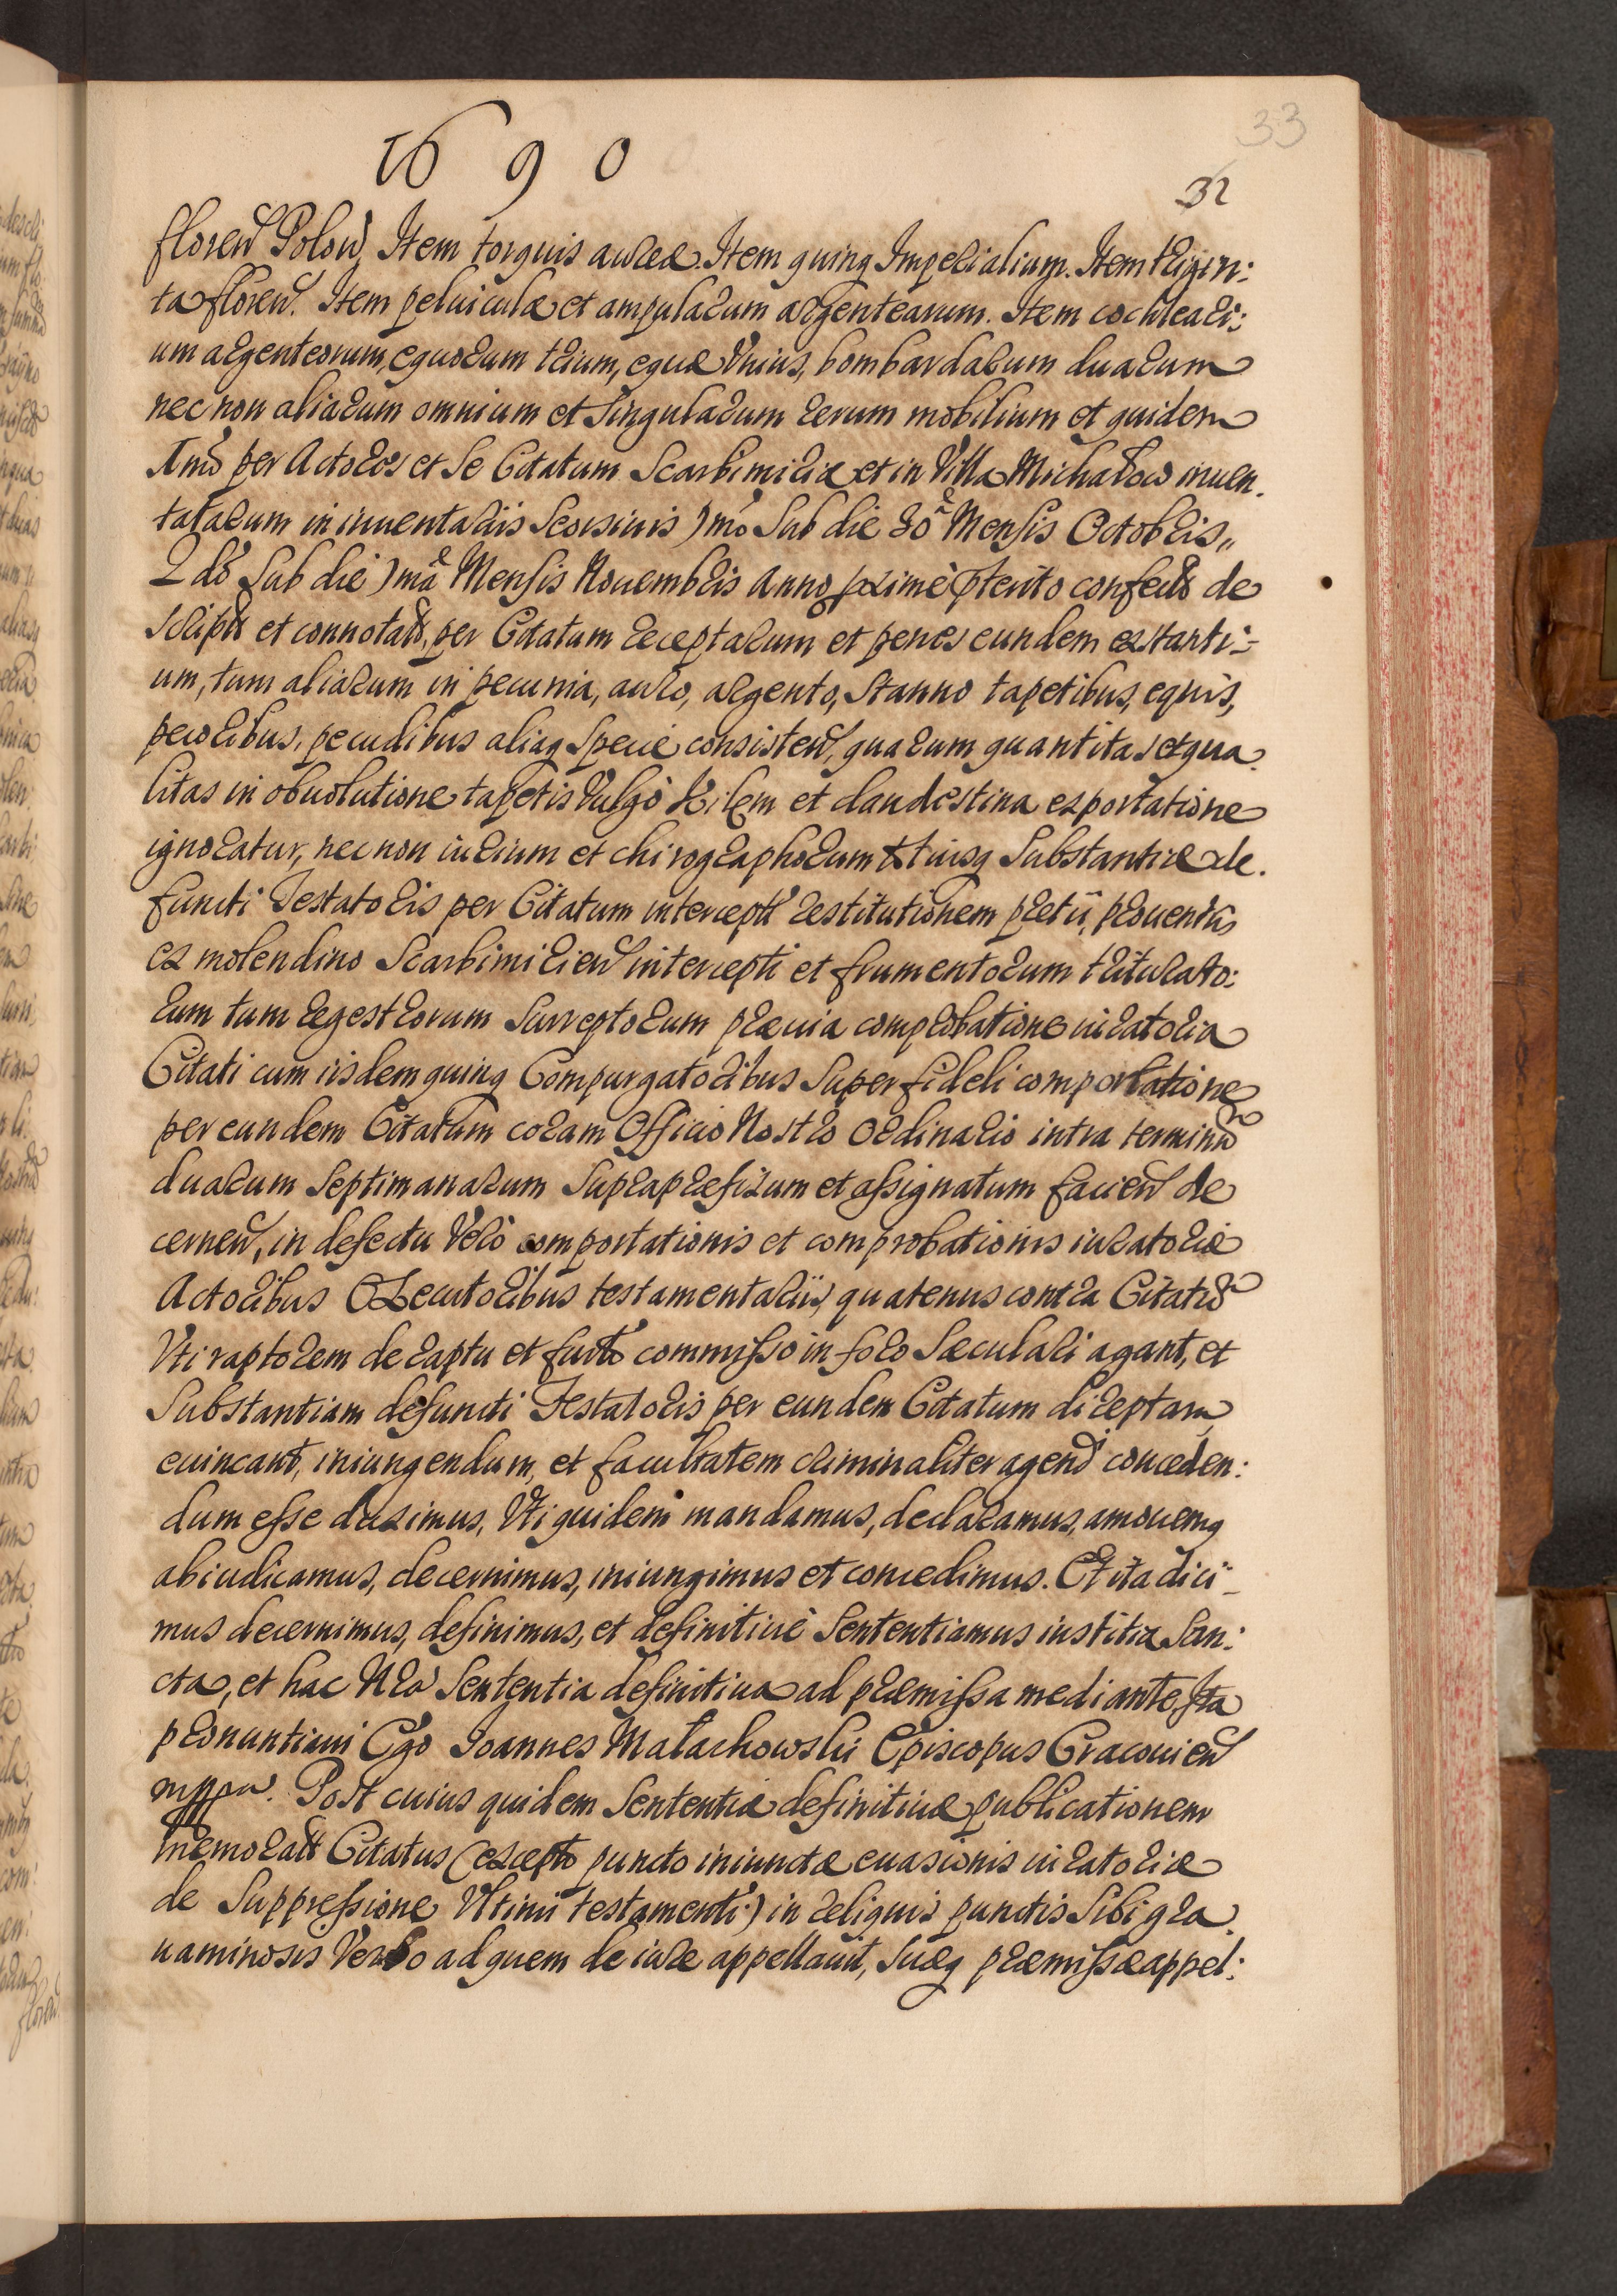 1690
33
32
floren Polon, Item torquis aureæ. Item quinq Imperialium. Item trigin:
ta floren. Item peluiculæ et ampularum argentearum. Item cochleari:
um argenteorum, equorum trium, equæ Vnius, bombardarum duarum
nec non aliarum omnium et Singularum rerum mobilium et quidem
Imo per Actores et Se Citatum Scarbimiriæ et in Villa Michałow inuen.
tatarum in inuentariis Seorsiuis Imo Sub die 30a Mensis Octobris,,
2do Sub die Ima Mensis Nouembris Anno proxime pterito confectis de
scriptis et connotatis, per Citatum receptarum et penes eundem exstanti:
um, tum aliarum in pecunia, auro, argento, Stanno tapetibus, equis,
pecoribus, pecudibus aliaq Specie consisten, quarum quantitas et qua.
litas in obuolutione tapetis Vulgo Kilem et clandestina exportatione
ignoratur, nec non iurium et chirographorum ttiusq Substantiæ de.
functi Testatoris per Citatum intercept restitutionem pretii, prouentus
ex molendino Scarbimirien intercepti et frumentorum triturato:
rum tum regestrorum Surreptorum præuia comprobatione iuratoria
Citati cum iisdem quinq Compurgatoribus Super fideli comportatione
per eundem Citatum coram Officio Nostro Ordinario intra terminu
duarum Septimanarum Supra præfixum et assignatum facien de
cernen, in defectu Vero comportationis et comprobationis iuratoriæ
Actoribus Executoribus testamentariis, quatenus contra Citatu
Vti raptorem de raptu et furto commisso in foro Sæculari agant, et
Substantiam defuncti Testatoris per eundem Citatum direptam
euincant, iniungendum, et facultatem criminaliter agendi conceden:
dum esse duximus, Vti quidem mandamus, declaramus, amouemq
abiudicamus, decernimus, iniungimus et concedimus. Et ita dici_
mus decernimus, definimus, et definitiue Sententiamus iustitia San:
cta, et hac Nra Sententia definitiua ad præmissa mediante Sta
pronuntiaui Ego Ioannes Małachowski Episcopus Cracouien
mppa. Post cuius quidem Sententiæ definitiuæ publicationem
memoratt Citatus (excepto puncto iniunctæ euasionis iuratoriæ
de Suppressione Vltimi testamenti) in reliquis punctis Sibi gra.
uaminosis Verbo ad quem de iure appellauit, Suæq præmissæ appel: